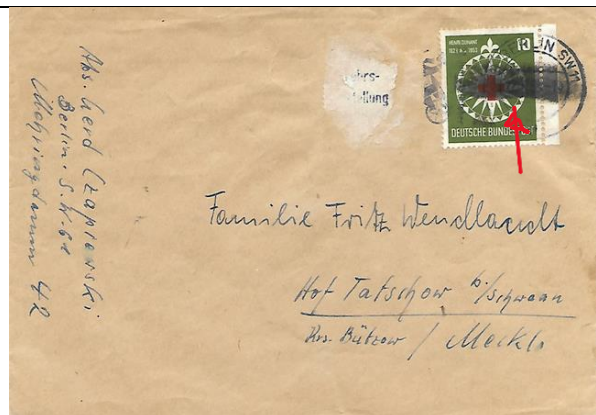 Abs. Gerd Czapierski
Berlin. S.W. 61
Mehringdamm 42
hrs-
ellung
HENRI DUNANT
10
DEUTSCHE BUNDESPOST
SW 11
Familie Fritz Wendlandt
Hof Tatschow b/Schwaan
Krs. Bützow / Meckl.